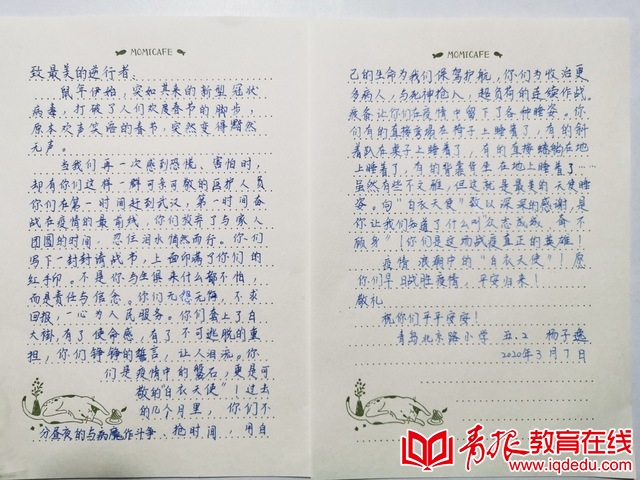 MOMICAFE
致最美的逆行者:
鼠年伊始，突如其来的新型冠状
病毒，打破了人们欢度春节的脚步，
原本欢声笑语的春节，突然变得黯然
无声。
当我们再一次感到恐慌、害怕时，
却有你们这样一群可亲可敬的医护人员
你们在第一时间赶到武汉，第一时间奋
战在疫情的最前线，你们放弃了与家人
团圆的时间，忍住泪水悄然而行。你们
写下一封封请战书，上面印满了你们的
红手印。不是你与生俱来什么都不怕，
而是责任与信念。你们无怨无悔，不求
回报，一心为人民服务。你们套上了白
大褂，有了使命感，有了不可逃脱的重
担，你们铮铮的誓言，让人泪流。你
们是疫情中的磐石，更是可
敬的白衣天使"！过去
的个月里，你们不
分昼夜的与病魔作斗争、抢时间，用自
MOMICAFE
己的生命为我们保驾护航，你们为收治更
多病人，与死神抢人，超负荷的连续作战。
疲备让你们在疫情中留下了各种睡姿。你
们有的直接穿在椅子上睡着了，有的斜
着趴在桌子上睡着了，有的直接蜷躺在地
上睡着了，有的背靠背坐在地上睡着了……
虽然有些不文雅，但这就是最美的天使睡
姿。向"白衣天使"致以深深的感谢，是
你让我们知道了什么叫众志成城，奋不
顾身"！你们是这场战疫真正的英雄！
疫情浪潮中的"白衣天使"！愿
你们早日战胜疫情，平安归来！
敬礼
祝你们平平安安！
青岛北京路小学 五.2 杨子逸
2020年3月7日
青报教育在线
www.iqdedu.com